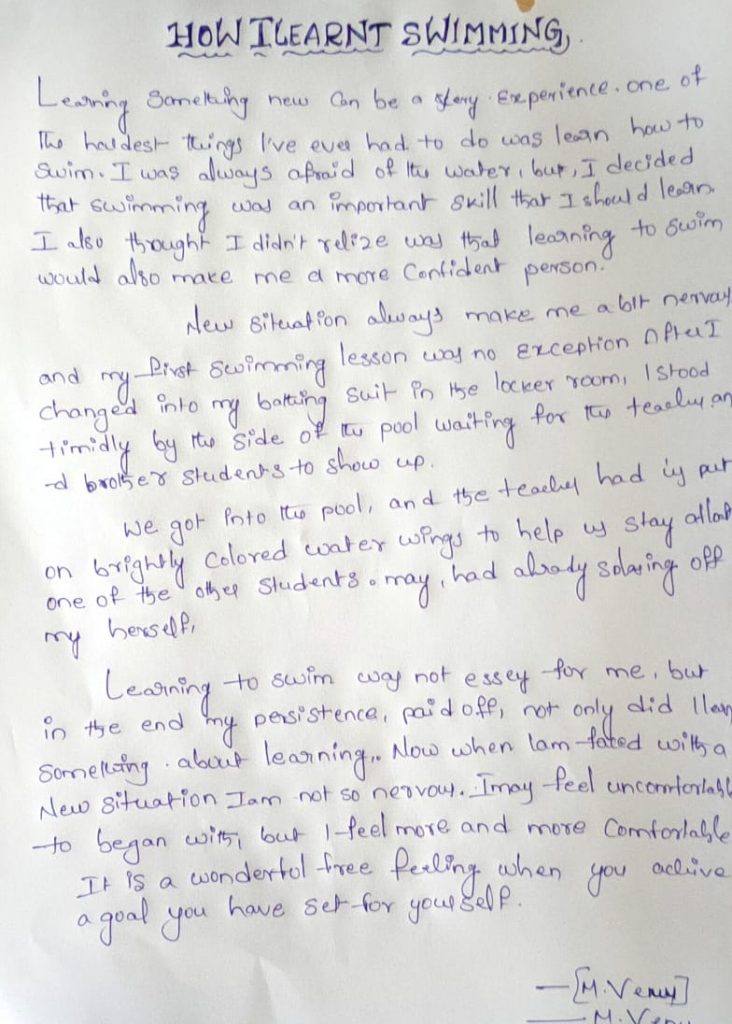 HOW I LEARNT SWIMMING
Learning Something new Can be a Skery Experience. one of
The hardest things I've ever had to do was learn how to
Swim. I was always afraid of the water, but, I decided
that swimming was an important skill that I should learn.
I also thought I didn't relize was that learning to swim
would also make me a more Confident person.
New Situation always make me a bit nervay
and my first swimming lesson was no Exception After I
changed into my bathing suit in the locker room, I stood
timidly by the side of the pool waiting for the teacher an
-d brother students to show up.
we got into the pool, and the teacher had us put
on brightly Colored water wings to help us stay
one of the other students. may, had alrady off
my herself,
Learning to swim way not essey for me, but
in the end my persistence, paid off, not only did I lean
Something. about learning,. Now when Iam fated with a
New Situation Iam not so nervouy. I may feel uncomfortabl
to began with, but I feel more and more Comfortable
It is a wonderful free feeling when you achive
a goal you have set for yourself.
— [M. Venuy]
— M. Venu